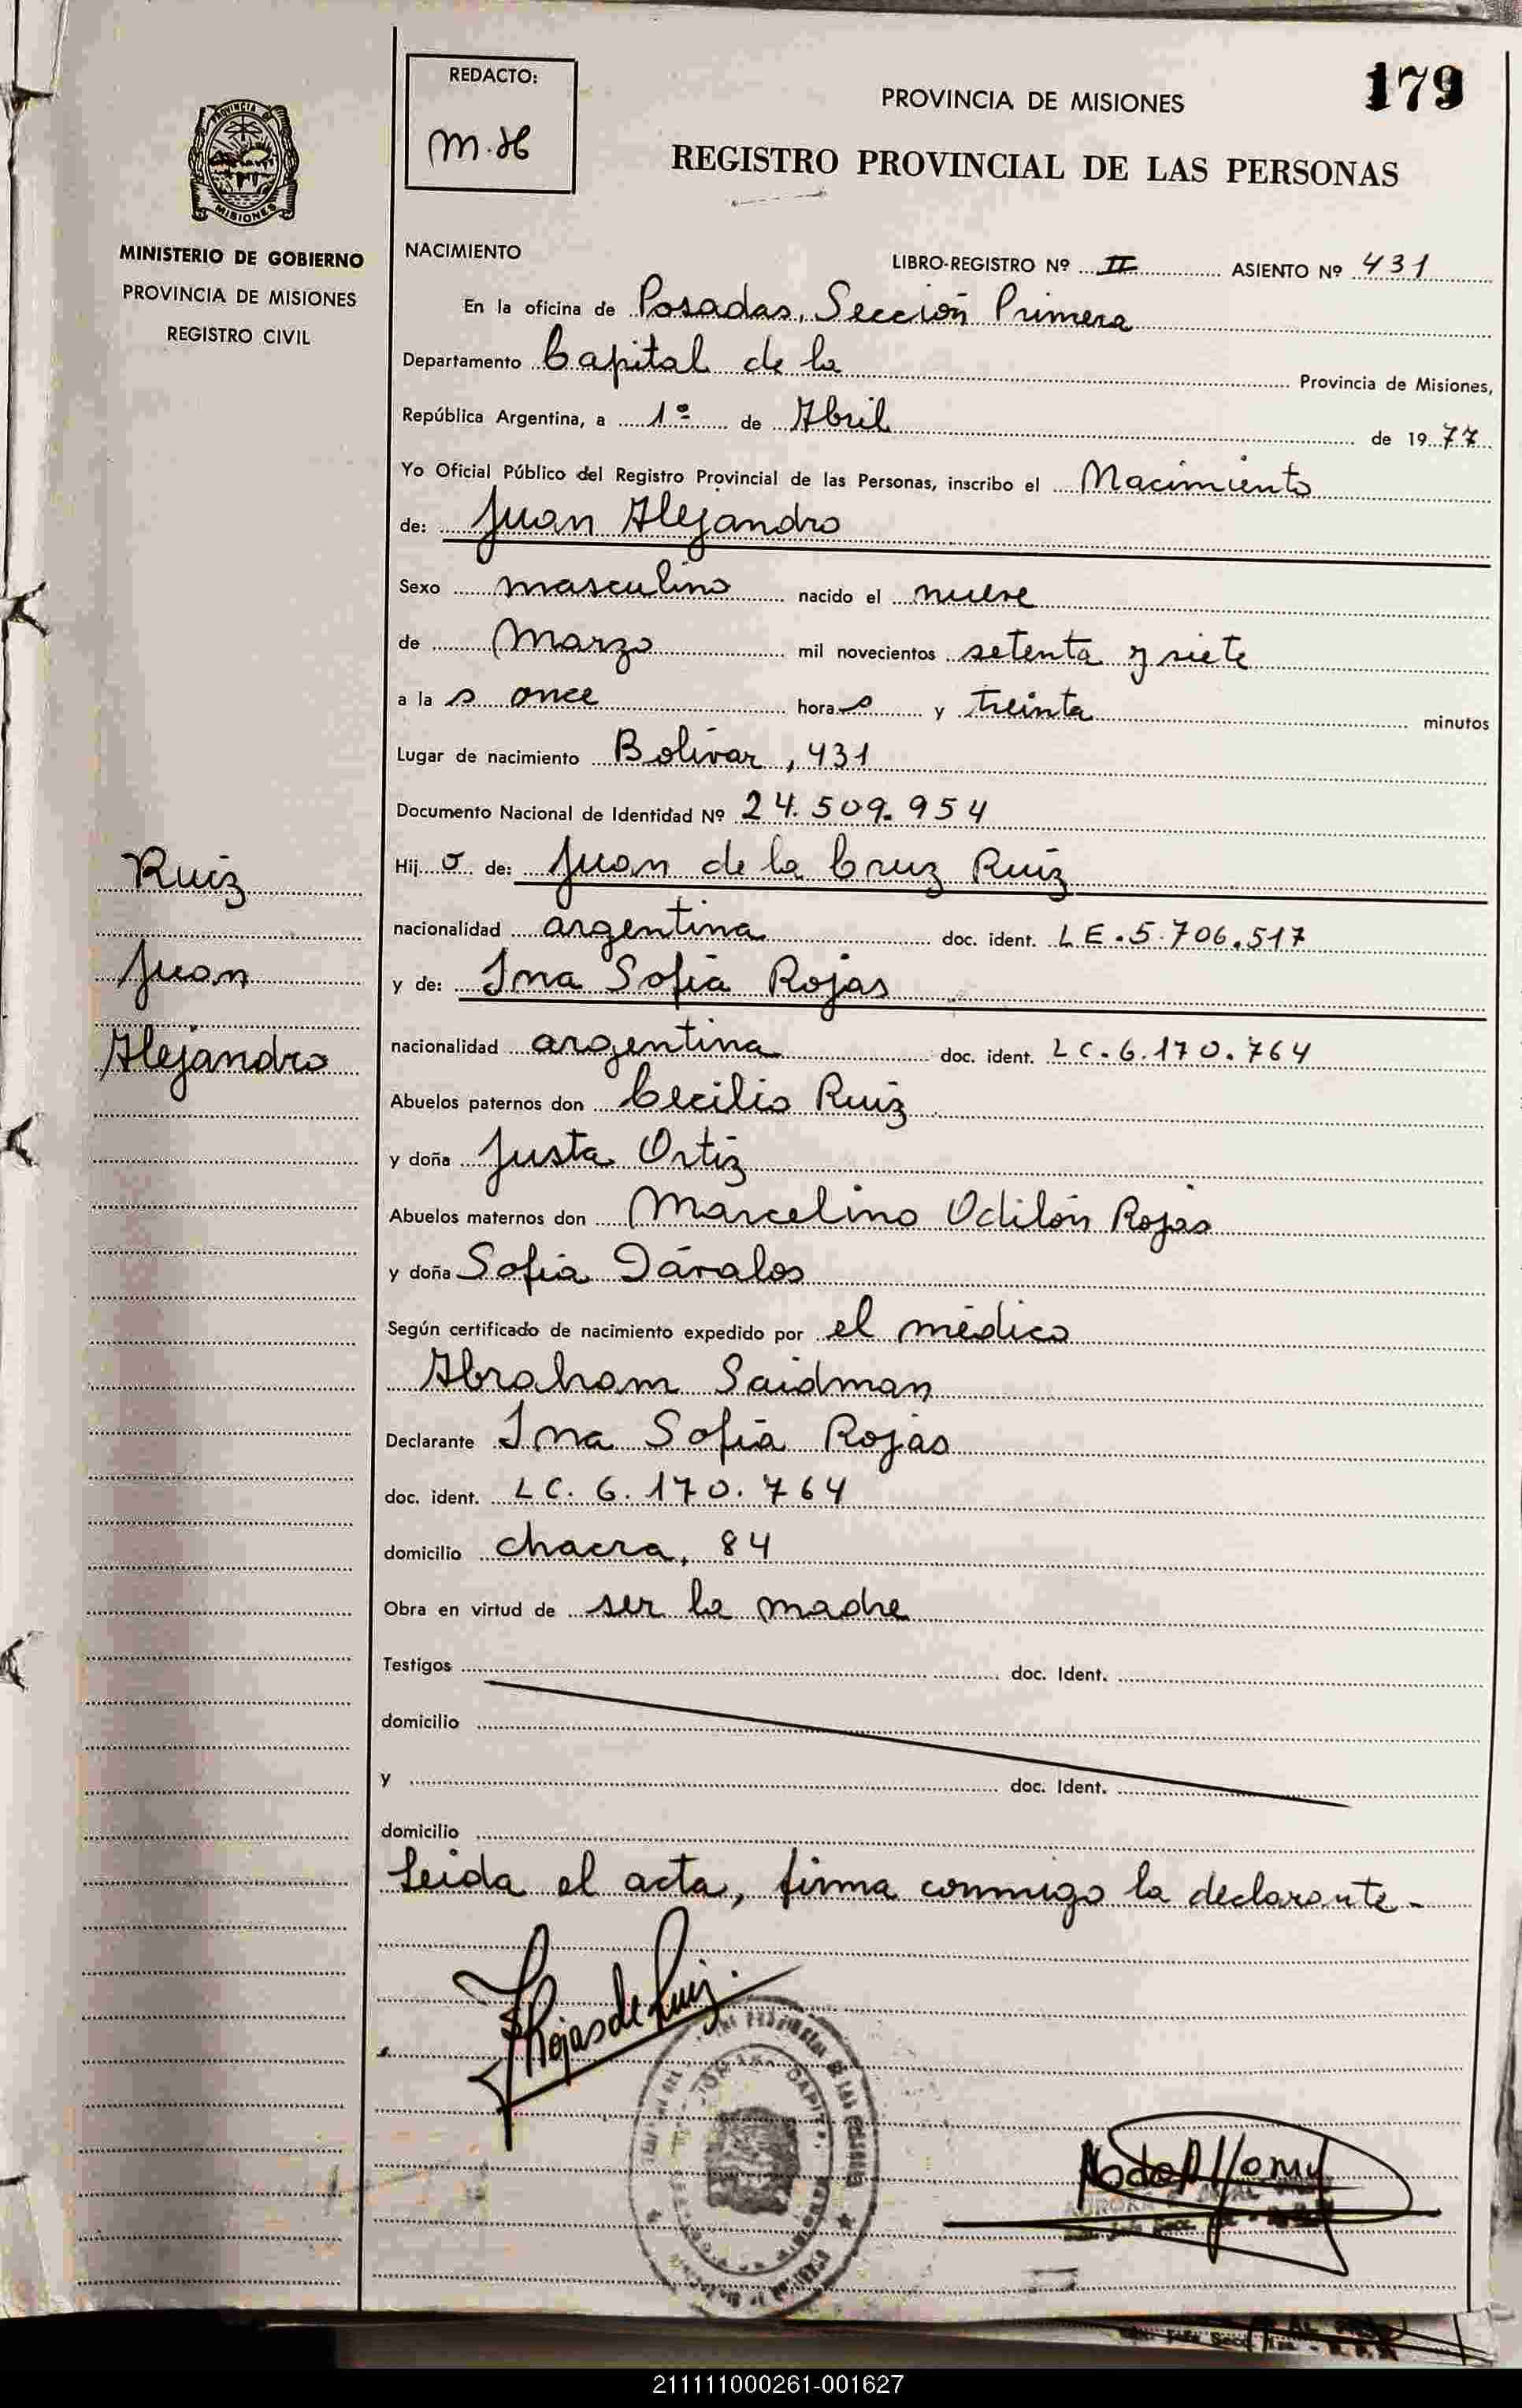 179
REDACTO:
M.H
PROVINCIA DE MISIONES
REGISTRO PROVINCIAL DE LAS PERSONAS
PROVINCIA DE
MISIONES
MINISTERIO DE GOBIERNO
PROVINCIA DE MISIONES
REGISTRO CIVIL
NACIMIENTO
LIBRO-REGISTRO Nº II ASIENTO Nº 431
En la oficina de Posadas, Sección Primera
Departamento Capital de la Provincia de Misiones,
República Argentina, a 1º de Abril de 1977
Yo Oficial Público del Registro Provincial de las Personas, inscribo el Nacimiento
de: Juan Alejandro
Sexo masculino nacido el nueve
de Marzo mil novecientos setenta y siete
a la s once hora s y treinta minutos
Lugar de nacimiento Bolívar, 431
Documento Nacional de Identidad Nº 24.509.954
Hij o de: Juan de la Cruz Ruiz
nacionalidad argentina doc. ident. LE.5.706.517
y de: Ina Sofia Rojas
nacionalidad argentina doc. ident. LC.6.170.764
Abuelos paternos don Cecilio Ruiz
y doña Justa Ortiz
Abuelos maternos don Marcelino Odilón Rojas
y doña Sofia Dávalos
Según certificado de nacimiento expedido por el médico
Abraham Saidman
Declarante Ina Sofia Rojas
doc. ident. LC.6.170.764
domicilio chacra, 84
Obra en virtud de ser la madre
Testigos doc. Ident.
domicilio
y doc. Ident.
domicilio
Leida el acta, firma conmigo la declarante.-
Ruiz
Juan
Alejandro
Rojas de Ruiz
211111000261-001627